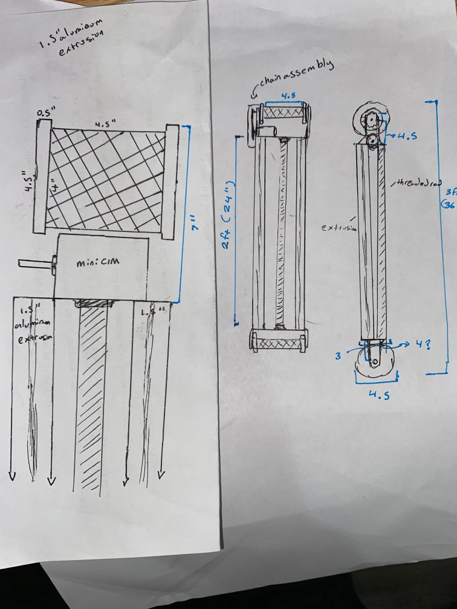 1.5" aluminum
extrusion
0.5"
4.5"
4.5"
4"
7"
mini CIM
1.5"
aluminum
extrusion
1.5"
chain assembly
4.5
2ft (24")
4.5
threaded rod
extrusion
3ft
(36
3
4?
4.5